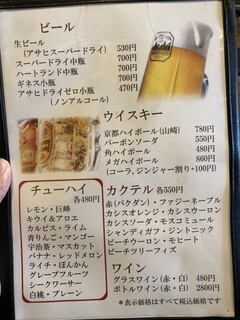 ビール
生ビール
(アサヒスーパードライ) 530円
スーパードライ中瓶 700円
ハートランド中瓶 700円
ギネス小瓶 700円
アサヒドライゼロ小瓶 470円
(ノンアルコール)
Asahi
ウイスキー
京都ハイボール(山崎) 780円
バーボンソーダ 550円
角ハイボール 480円
メガハイボール 860円
(コーラ、ジンジャー割り+100円)
チューハイ
各480円
レモン・巨峰
キウイ&アロエ
カルピス・ライム
青りんご・マンゴー
宇治茶・マスカット
バナナ・レッドメロン
ライチ・ぽんかん
グレープフルーツ
シークワーサー
白桃・プレーン
カクテル 各550円
赤(バクダン)・ファジーネーブル
カシスオレンジ・カシスウーロン
カシスソーダ・モスコミュール
シャンディガフ・ジントニック
ピーチウーロン・モヒート
ピーチツリーフィズ
ワイン
グラスワイン(赤・白) 480円
ボトルワイン(赤・白) 2800円
*表示価格はすべて税込価格です